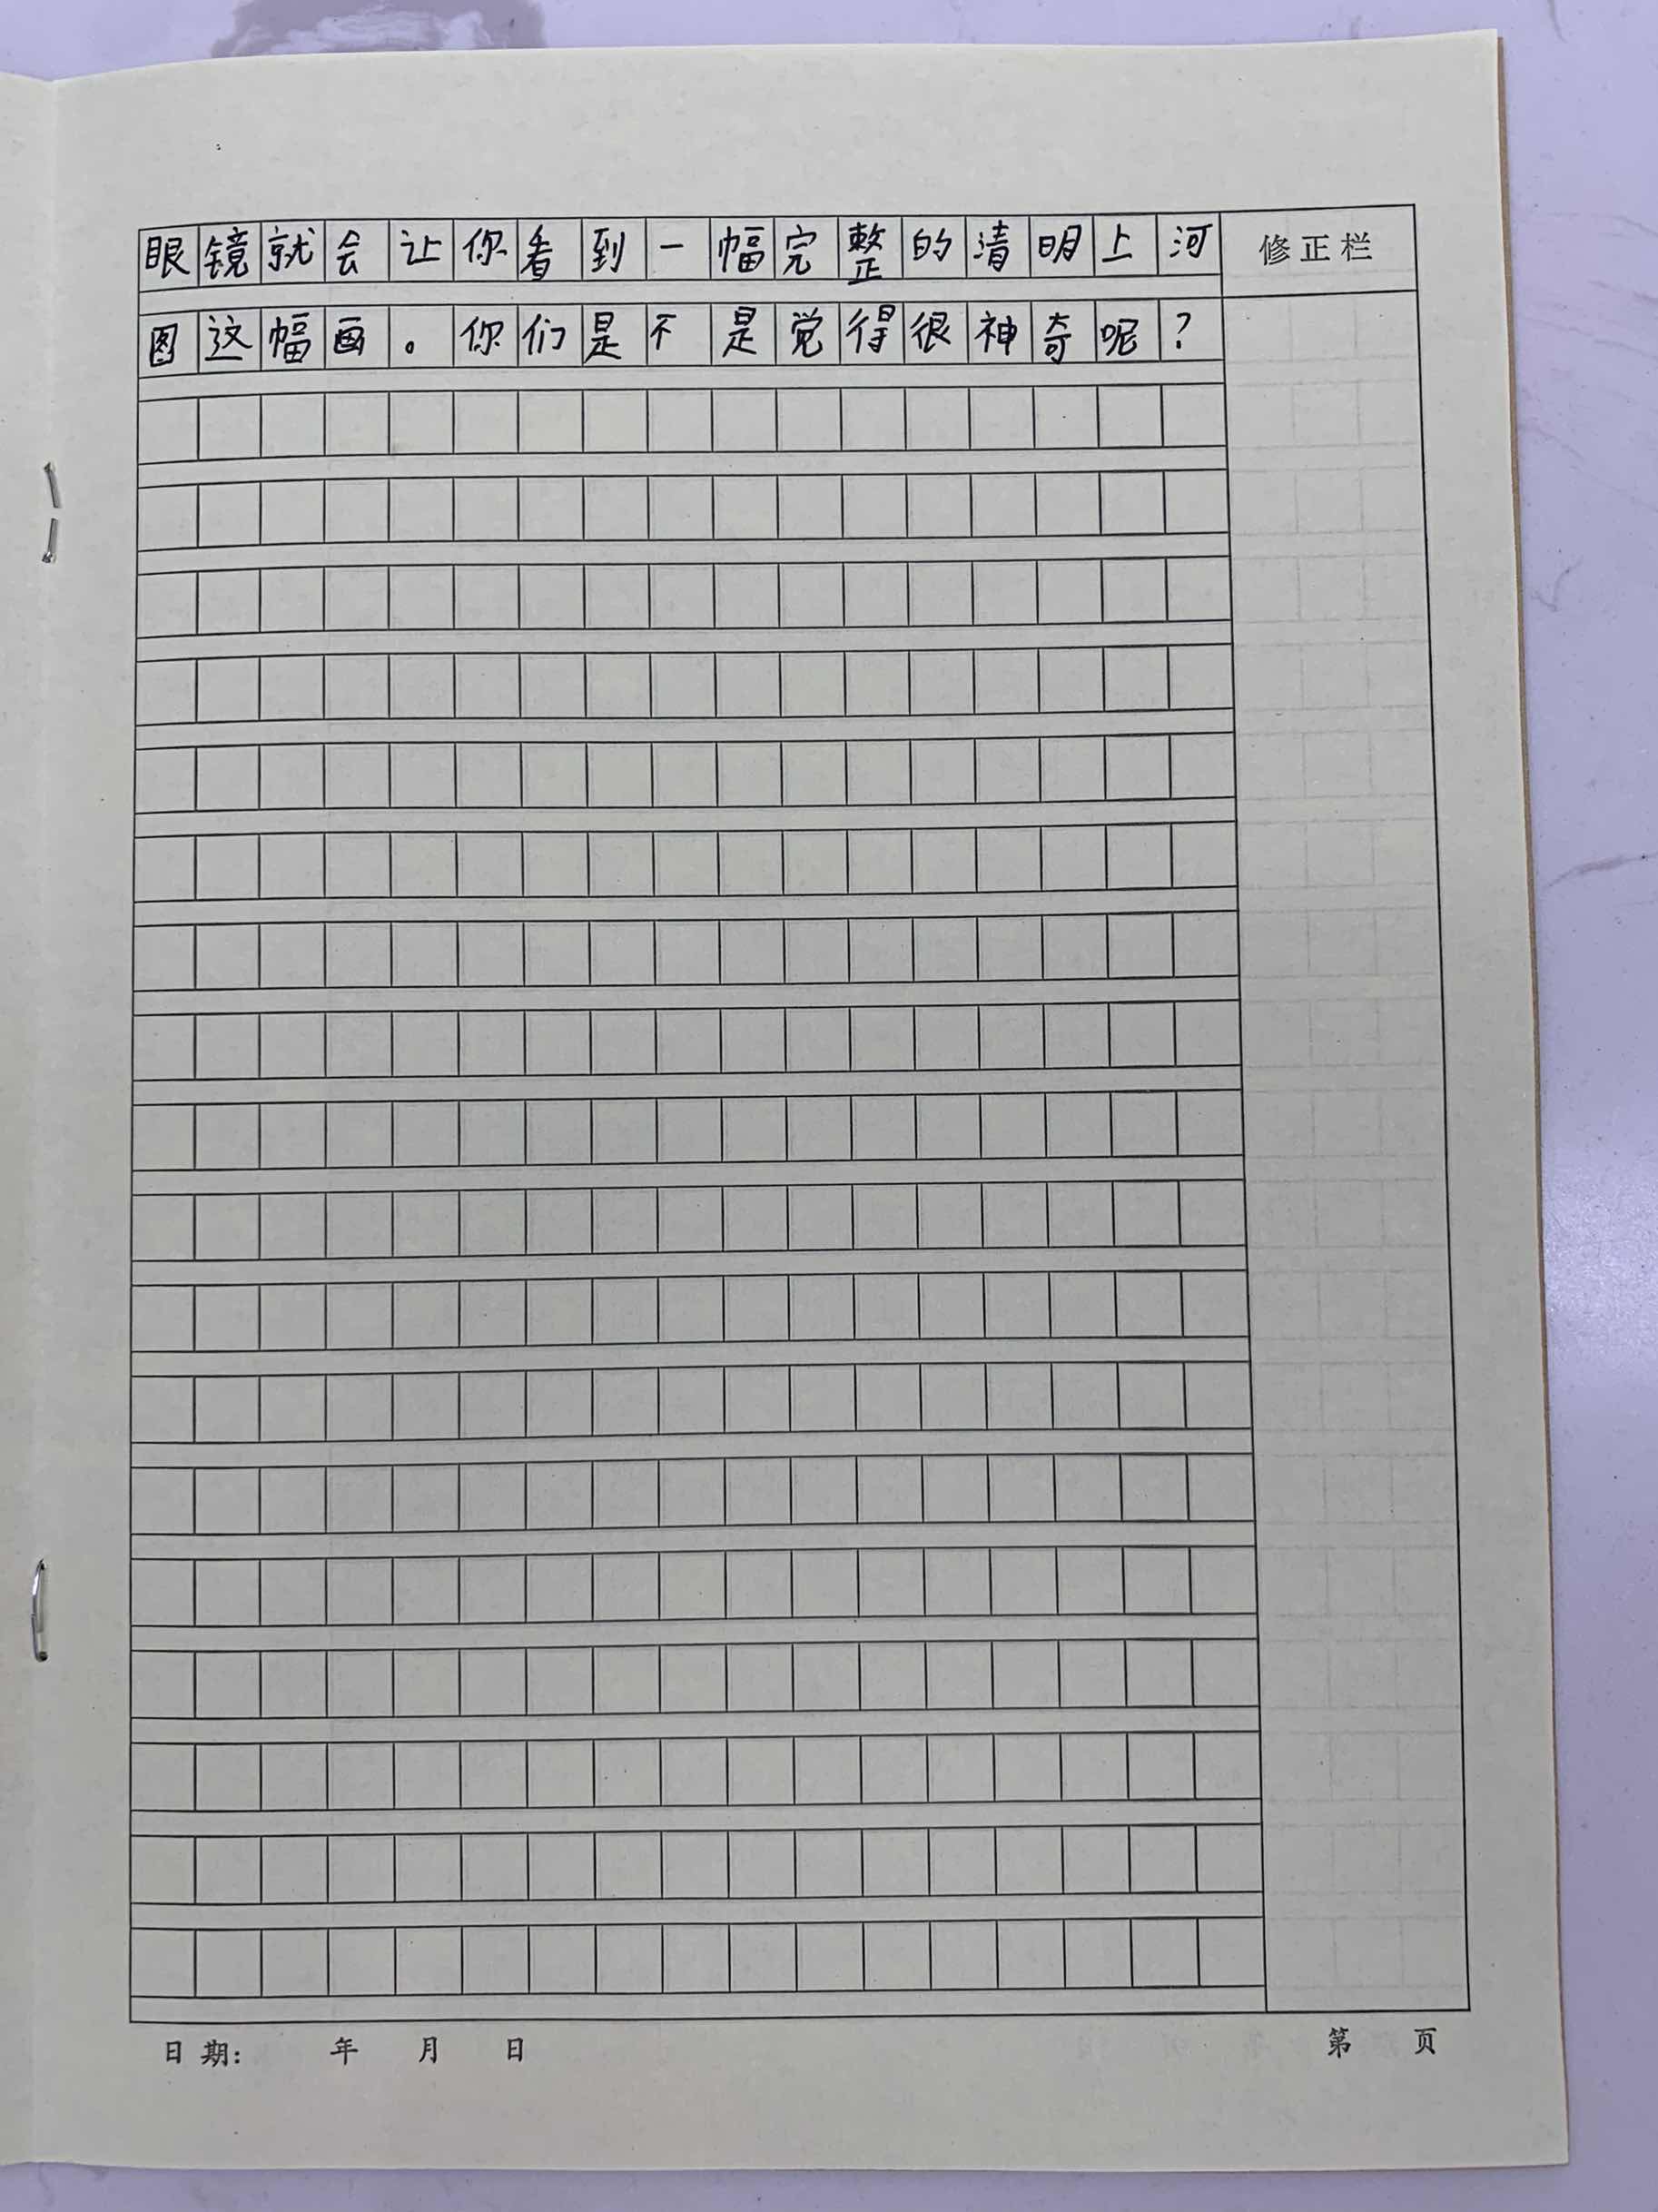 眼镜就会让你看到一幅完整的清明上河
修正栏
图这幅画。你们是不是觉得很神奇呢？
日期： 年 月 日
第 页